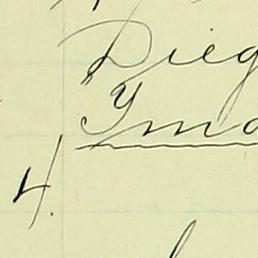 Dieg
"Yma
4.